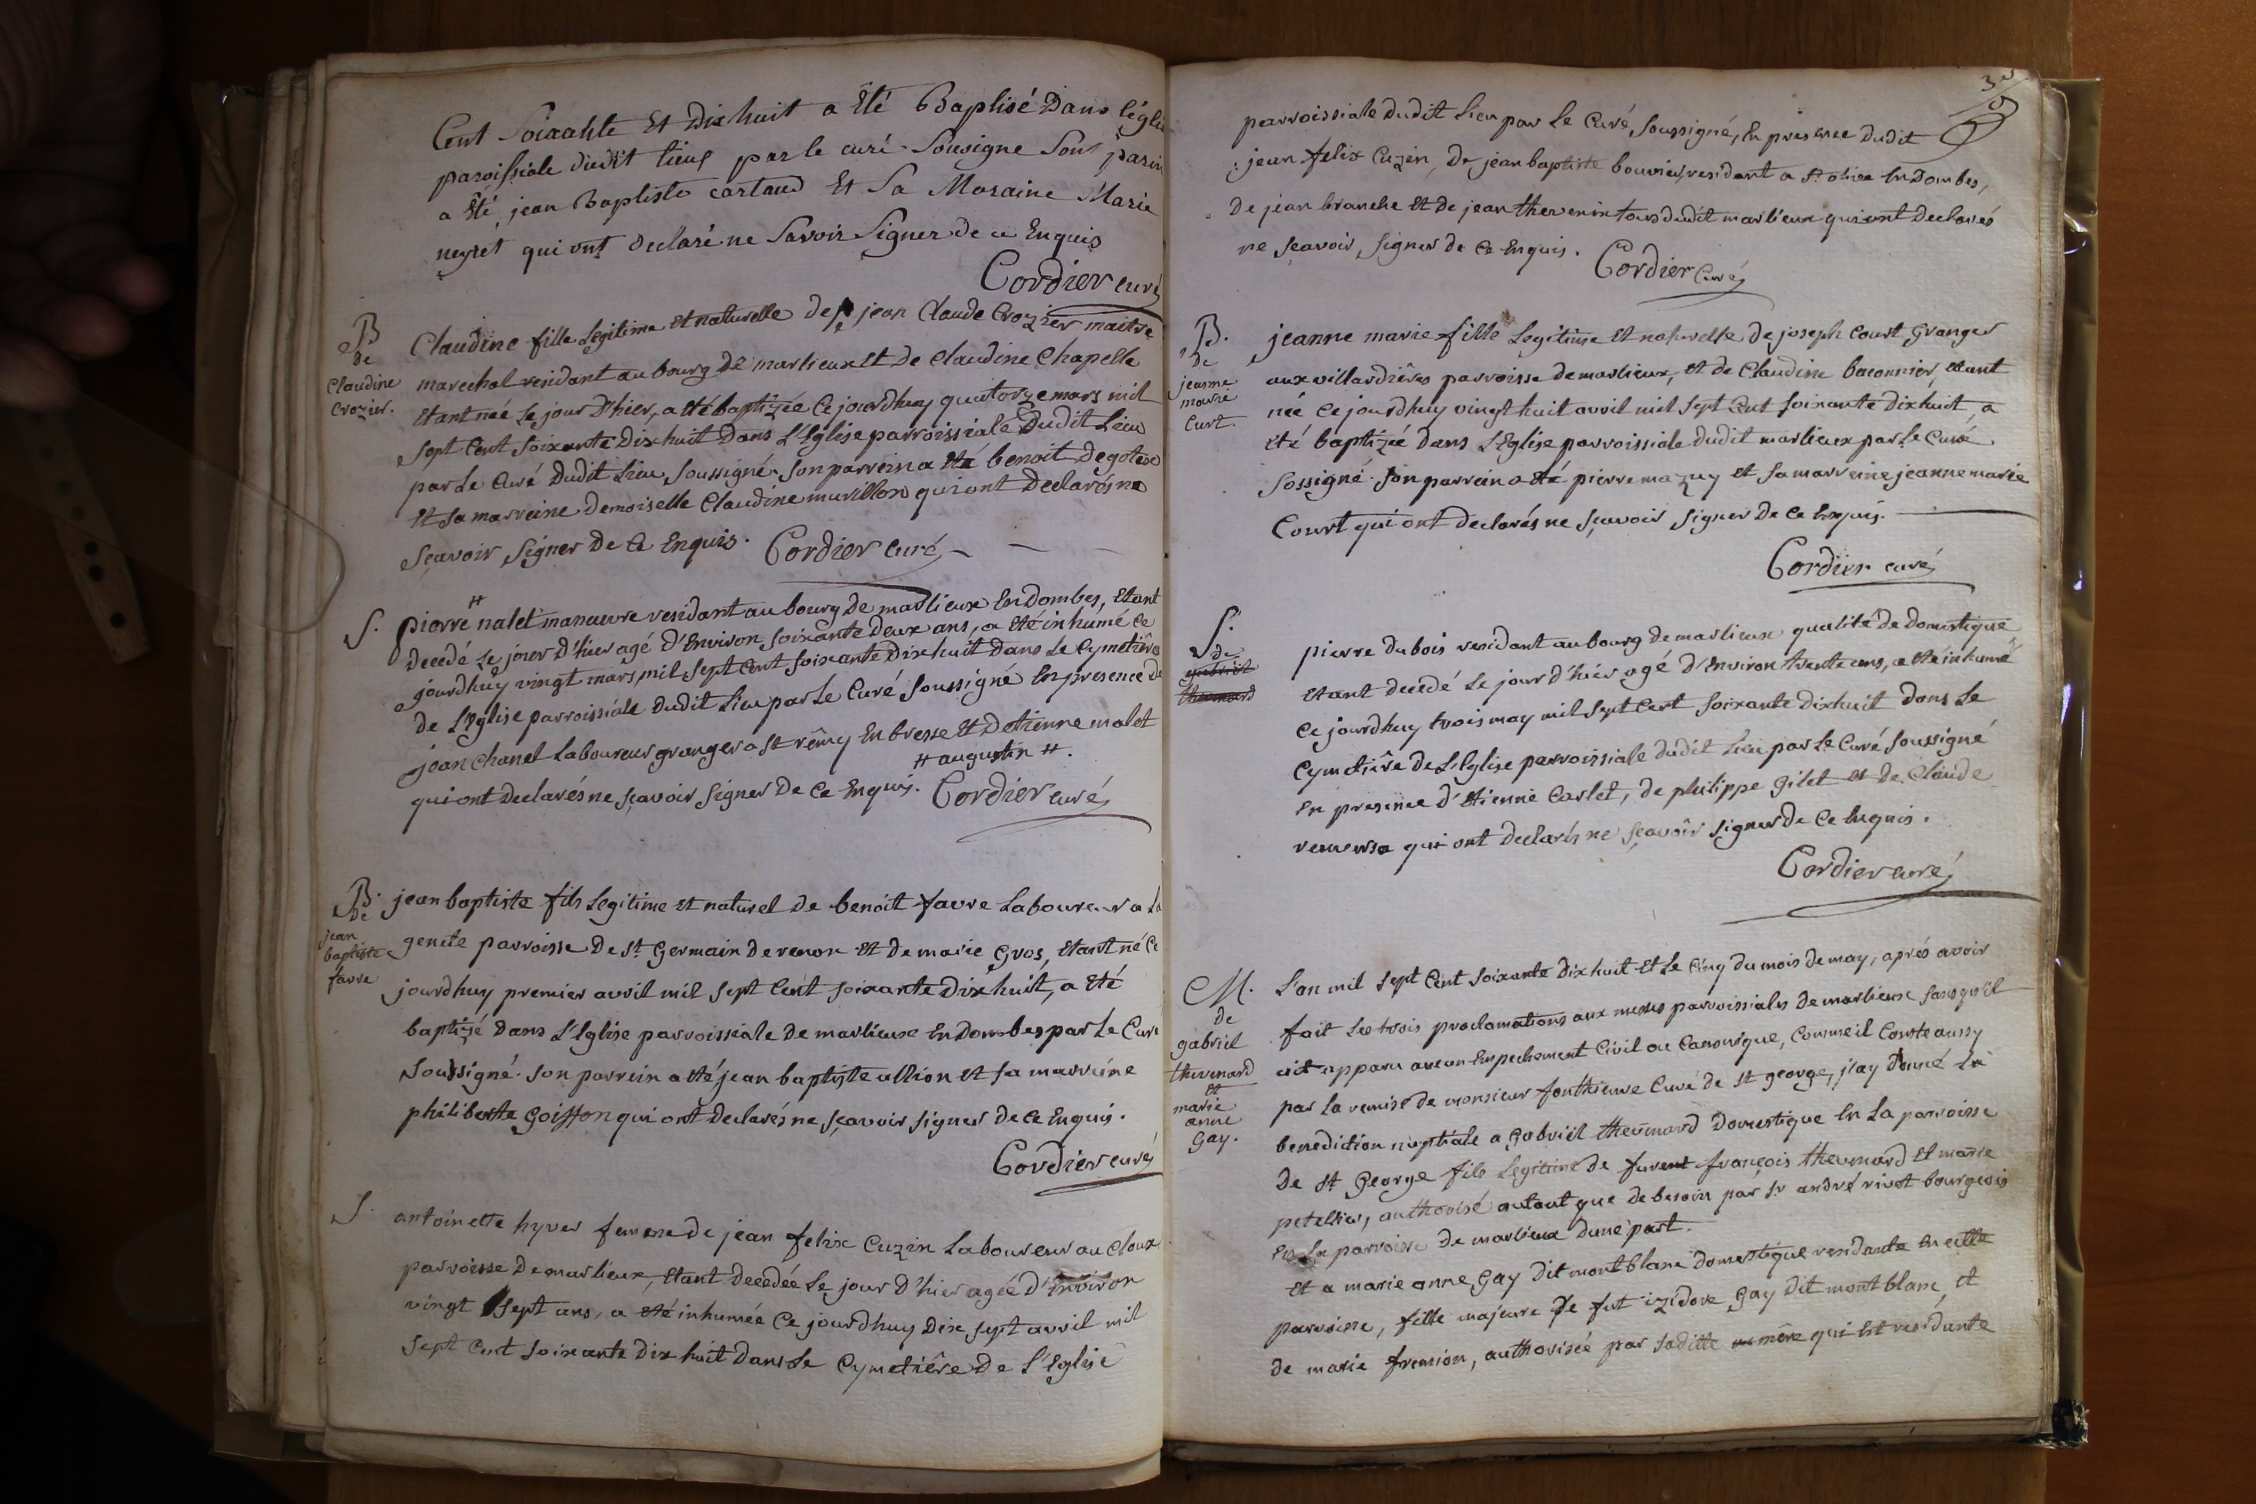 Cent Soixante Et Dix huit a Eté Baptisé Dans l'églis
paroissiale dudit lieu par le curé Sousigne Son parin
a Eté jean Baptiste cartaud Et Sa Maraine Marie
neyret qui ont declaré ne Savoir Signer de ce Enquis
Cordier curé
B
de
Claudine
Crozier.
Claudine fille Legitime et naturelle de jean Claude Crozier maitre
marechal residant au bourg de marlieux et de Claudine Chapelle
etant née Le jour d'hier, a eté baptizée Ce jourdhuy quatorze mars mil
sept Cent soixante Dix huit Dans L'Eglise parroissiale Dudit Lieu
par Le Curé Dudit Lieu soussigné. son parrein a eté benoit Degoteix
et sa marreine Demoiselle Claudine murillon qui ont Declarés ne
sçavoir signer De Ce Enquis. Cordier curé
S.
pierre # nalet manœuvre residant au bourg de marlieux En dombes, Etant
decedé Le jour d'hier agé d'Environ soixante Deux ans, a eté inhumé Ce
jourdhuy vingt mars mil sept Cent soixante Dix huit Dans Le Cymetiêre
de L'Eglise parroissiale Dudit Lieu par Le Curé soussigné En presence De
jean Chanel Laboureur granger a st rêmy En bresse et D'etienne malet
# augustin #.
qui ont declarés ne sçavoir signer De Ce Enquis. Cordier curé
B.
de
jean
baptiste
favre
jean baptiste fils Legitime et naturel de benoit favre Laboureur a La
genete parroisse De st germain de renon et de marie gros, etant né Ce
jourdhuy premier avril mil sept Cent soixante Dix huit, a eté
baptizé dans L'Eglise parroissiale de marlieux En Dombes par Le Curé
soussigné. son parrein a eté jean baptiste allion et sa marreine
philiberte goiffon qui ont declarés ne sçavoir signer de Ce Enquis.
Cordier curé
S.
antoinette hyver femme de jean felix Cuzin Laboureur au Cloux
parroisse De marlieux, etant decedée Le jour d'hier agée d'Environ
vingt sept ans, a eté inhumée Ce jourdhuy Dix sept avril mil
sept Cent soixante dix huit dans Le Cymetiêre De L'Eglise
39
parroissiale dudit Lieu par Le Curé soussigné, En presence dudit
jean felix Cuzin, de jean baptiste bouvier residant a st olive En Dombes,
De jean branche et de jean thevenin tous dudit marlieux qui ont declarés
ne sçavoir signer de Ce Enquis. Cordier Curé
B.
de
jeanne
marie
Curt.
jeanne marie fille Legitime et naturelle de joseph Court granger
aux villardiêres parroisse de marlieux, et de Claudine baconnier, etant
née Ce jourdhuy vingt huit avril mil sept Cent soixante dix huit, a
eté baptizée dans L'Eglise parroissiale dudit marlieux par Le Curé
sossigné. son parrein a eté pierre mazuy et sa marreine jeanne marie
Court qui ont declarés ne sçavoir signer De Ce Enquis.
Cordier curé
S.
de
gabriel
thevenard
pierre dubois residant au bourg de marlieux qualité de domestique
etant decedé Le jour d'hier agé d'Environ trente ans, a eté inhumé
Ce jourdhuy trois may mil sept Cent soixante dix huit dans Le
Cymetiêre de L'Eglise parroissiale dudit Lieu par Le Curé soussigné
En presence d'etienne Carlet, de philippe gilet et de Claude
qui ont declarés ne sçavoir signer de Ce Enquis.
Cordier curé
M.
de
gabriel
thevenard
et
marie
anne
Gay.
L'an mil sept Cent soixante dix huit et Le Cinq du mois de may, aprés avoir
fait Les trois proclamations aux messes parroissiales de marlieux sans qu'il
ait apparu aucun Empechement Civil ou Canonique, Comme il Conste aussy
par La remise de monsieur fonthieure Curé de st george, j'ay donné La
benediction nuptiale a gabriel thevenard Domestique En La parroisse
De st george fils Legitime de furent françois thevenard et marie
petellier, authorisé autant que de besoin par sr andré rivot bourgeois
En La parroisse de marlieux dune part.
et a marie anne gay dit mont blanc domestique residante En cette
parroisse, fille majeure de fut izidore gay dit mont blanc, et
de marie fremion, authorisée par saditte mere qui Est residante